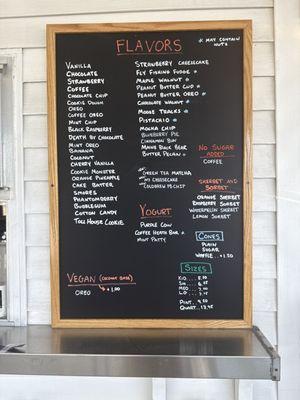 FLAVORS
* MAY CONTAIN NUTS
VANILLA
CHOCOLATE
STRAWBERRY
COFFEE
CHOCOLATE CHIP
COOKIE DOUGH
OREO
COFFEE OREO
MINT CHIP
BLACK RASPBERRY
DEATH BY CHOCOLATE
MINT OREO
BANANA
COCONUT
CHERRY VANILLA
COOKIE MONSTER
ORANGE PINEAPPLE
CAKE BATTER
SMORES
PHANTOMBERRY
BUBBLEGUM
COTTON CANDY
TOLL HOUSE COOKIE
STRAWBERRY CHEESECAKE
FLY FISHING FUDGE *
MAPLE WALNUT *
PEANUT BUTTER CUP *
PEANUT BUTTER OREO *
CHOCOLATE WALNUT *
MOOSE TRACKS *
PISTACHIO *
MOCHA CHIP
BLUEBERRY PIE
CINNAMON BUN
MAINE BLACK BEAR
BUTTER PECAN *
GREEN TEA MATCHA
NY CHEESECAKE
COLDBREW PB CHIP
YOGURT
PURPLE COW
COFFEE HEATH BAR *
MINT PATTY
NO SUGAR
ADDED
COFFEE
SHERBET AND
SORBET
ORANGE SHERBET
RASPBERRY SORBET
WATERMELON SHERBET
LEMON SORBET
CONES
PLAIN
SUGAR
WAFFLE +1.50
SIZES
PINT
QUART
VEGAN (COCONUT BASE)
OREO
+1.00